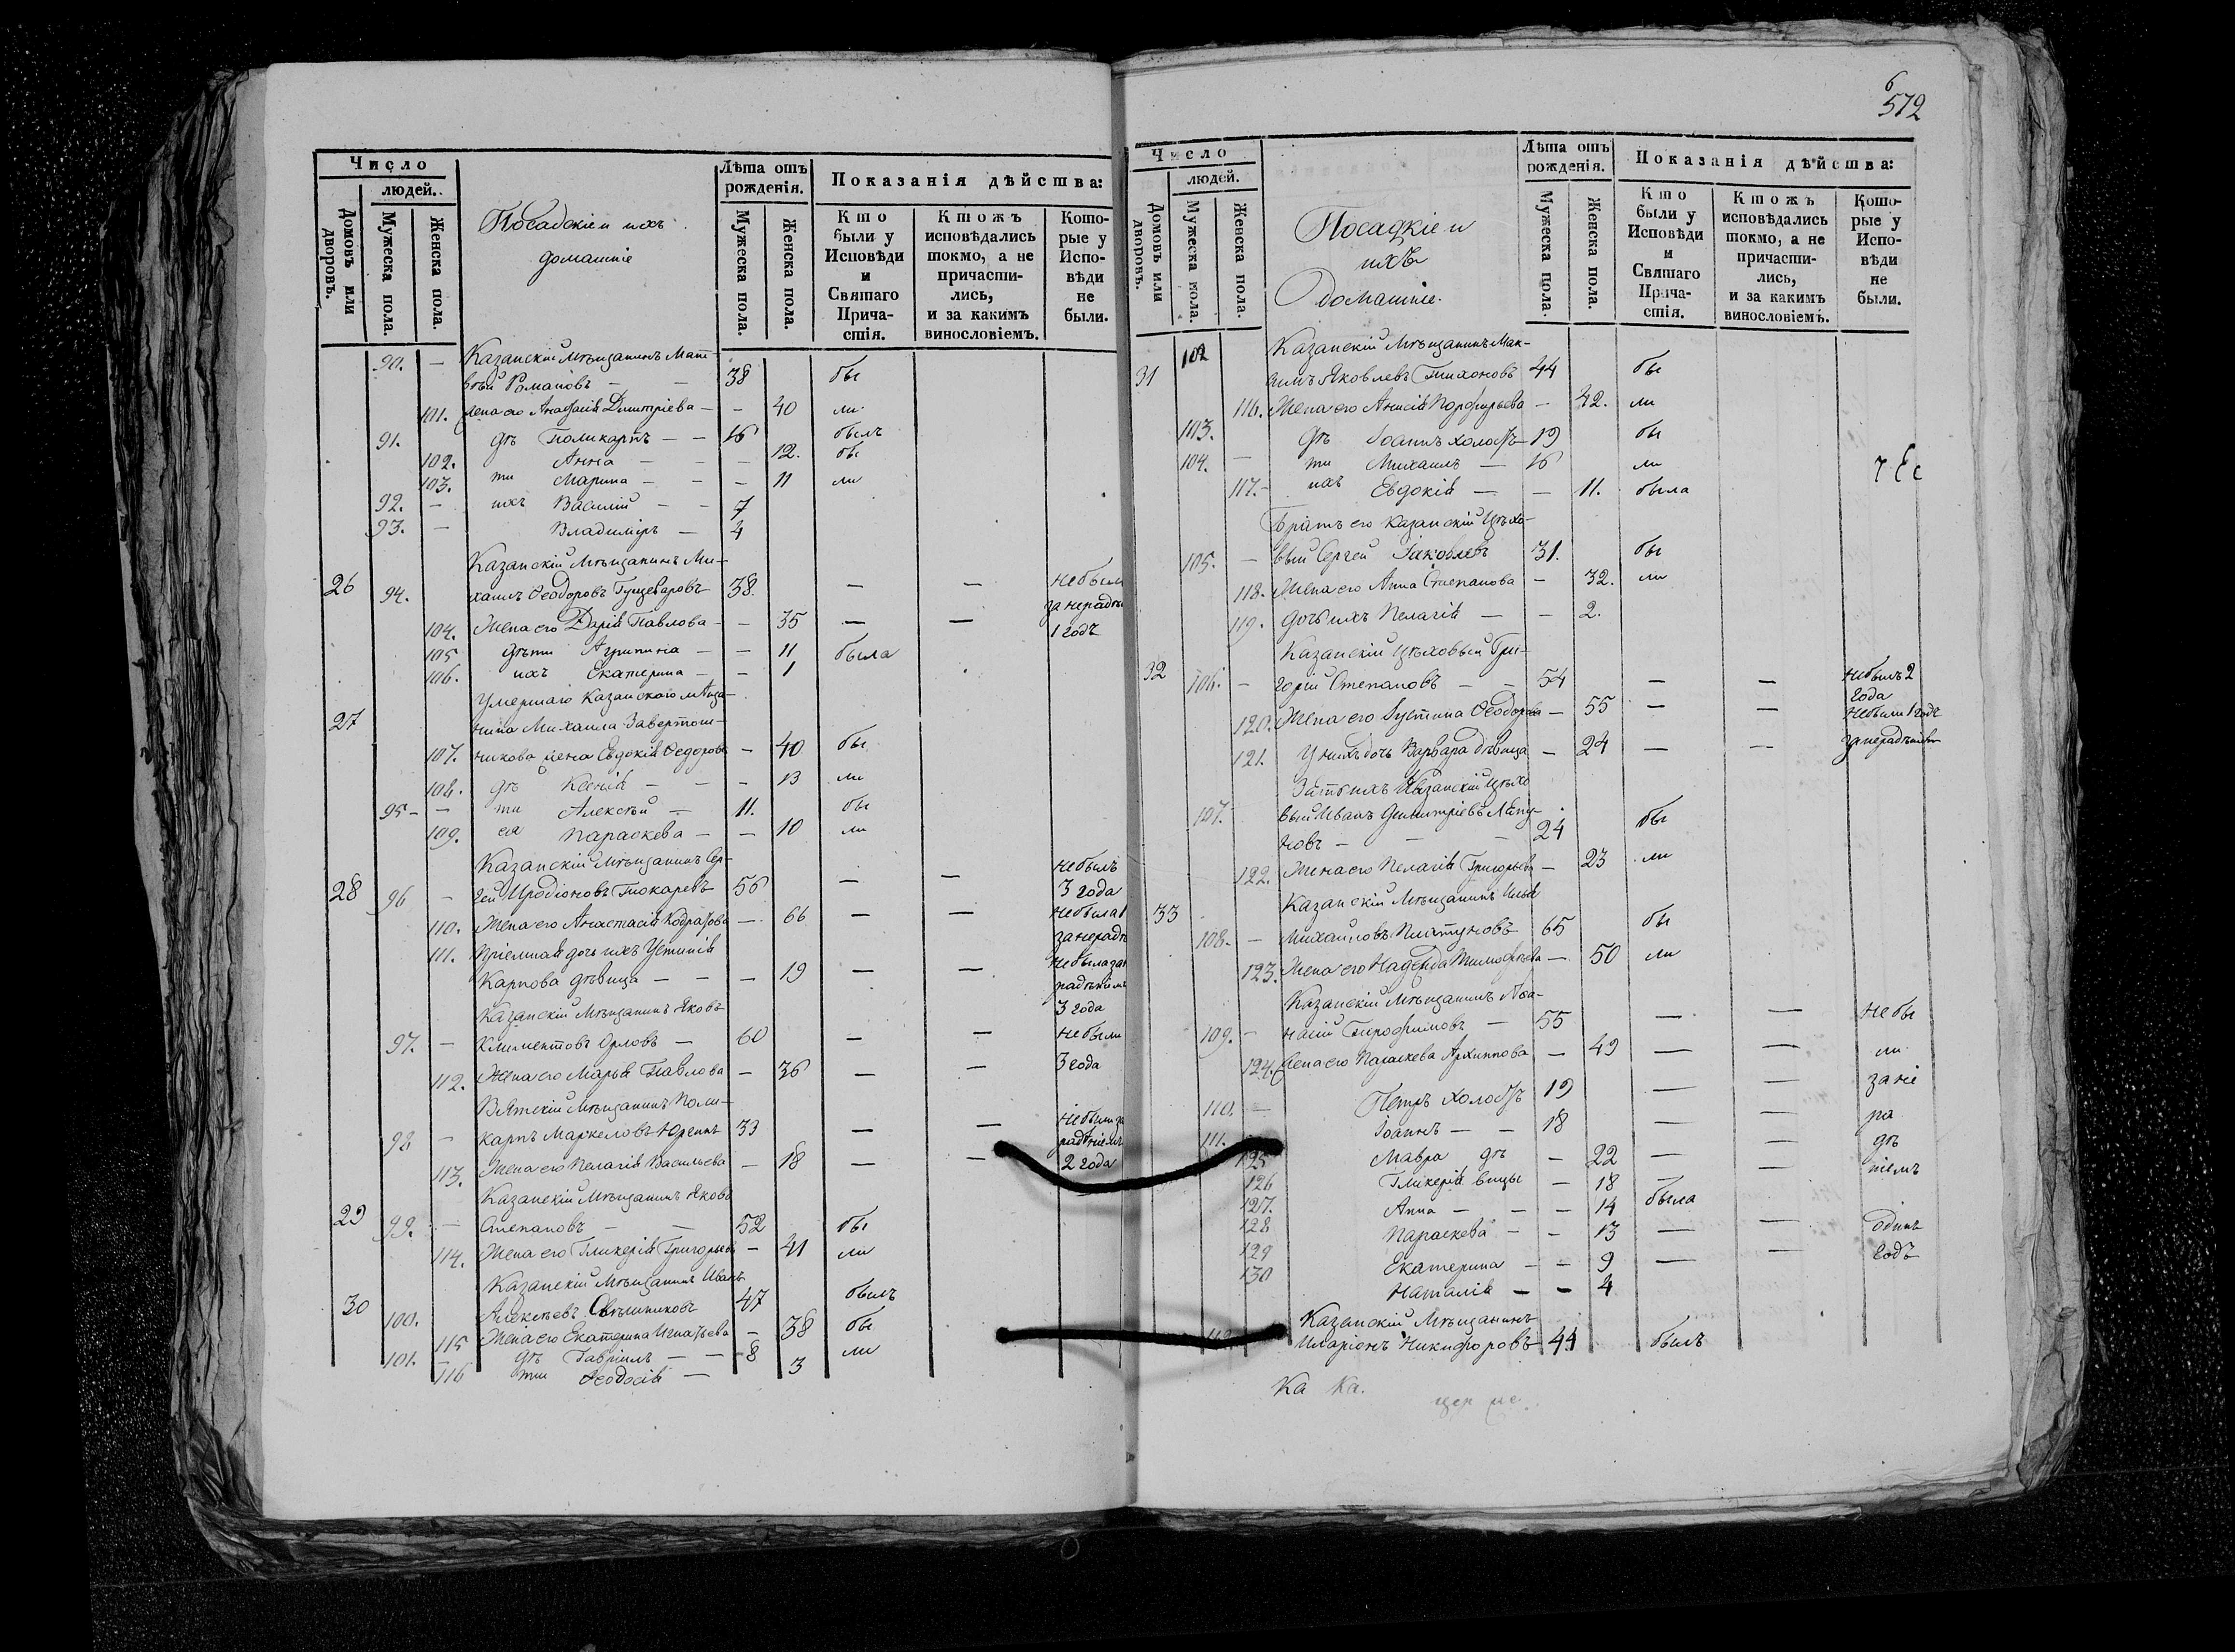 6
572
Число
людей.
Домовъ или дворовъ.
Мужеска пола.
Женска пола.
Посадскіе и ихъ
домашніе
Лѣта отъ рожденія.
Мужеска пола.
Женска пола.
Показанія дѣйства:
Кто были у Исповѣди и Святаго Причастія.
Ктожъ исповѣдались токмо, а не причастились, и за какимъ винословіемъ.
Которые у Исповѣди не были.
90. — Казанскій мѣщанинъ Мат-
вѣй Романовъ — — 38 бы
101. Жена его Анафасія Димитріева — — 40 ли
91. дѣ Поликарпъ — — 16 былъ
102. Анна — — — 12. бы
103. ти Марина — — — 11 ли
92. — ихъ Василій — — 7
93. — Владиміръ — 4
Казанскій мѣщанинъ Ми-
26 94. хаилъ Ѳеодоровъ 38. — — не были
за нерадѣ
104. Жена его Дарія Павлова — — 35 — — 1 годъ
105 дѣти Агрипина — — 11 была
106. ихъ Екатерина — — 1
Умершаго Казанскаго мѣща-
27 нина Михаила Завертош-
107. никова жена Евдокія Ѳедорова — 40 бы
108. дѣ Ксенія — — — 13 ли
95 — — ти Алексѣй — 11. бы
109. ея Параскева — — 10 ли
Казанскій мѣщанинъ Сер- не былъ
28 96 — гей Иродіоновъ Токаревъ 56 — — 3 года
110. Жена его Анастасія — 66 — — не была 1
за нерадѣ
111. Пріемная дочь ихъ Устинія не была за не
Карпова дѣвица — — — 19 — — радѣніемъ
Казанскій мѣщанинъ Яковъ 3 года
97. — Климентовъ Орловъ — 60 — — не были
112. Жена его Марья Павлова — 36 — — 3 года
Вятскій мѣщанинъ Поли-
98 — карпъ Маркеловъ 33 — — не были за
радѣніемъ
113. Жена его Пелагія Васильева — 18 — — 2 года
Казанскій мѣщанинъ Яковъ
29 99. — Степановъ — — 52 бы
114. Жена его Гликерія Григорьева — 41 ли
Казанскій мѣщанинъ Иванъ
30 100. Алексѣевъ Свѣшниковъ 47 былъ
115 Жена его Екатерина Игнатьева — 38 бы
101. дѣ Гавріилъ — — 8 ли
116 ти Ѳеодосія — 3
Число
людей.
Домовъ или дворовъ.
Мужеска пола.
Женска пола.
Посадкіе и
ихъ
Домашніе.
Лѣта отъ рожденія.
Мужеска пола.
Женска пола.
Показанія дѣйства:
Кто были у Исповѣди и Святаго Причастія.
Ктожъ исповѣдались токмо, а не причастились, и за какимъ винословіемъ.
Которые у Исповѣди не были.
102 Казанскій мѣщанинъ Мак-
31 симъ Яковлевъ Тихоновъ 44 бы
116. Жена его Анисія Порфирьева — 42. ли
103. дѣ Іоаннъ холостъ — 19 бы
104. — ти Михаилъ — 16 ли
117. — ихъ Евдокія — — 11. была
Братъ его казанскій цѣхо-
105. — вый Сергей Іаковлевъ 31. бы
118. Жена его Анна Степанова — 32. ли
119. дочь ихъ Пелагія — — 2.
Казанскій цѣховый Гри-
32 106. — горій Степановъ — — 54 — — не былъ 2
года
120. Жена его Іустина Ѳеодорова — 55 — — не были 1 годъ
121. У нихъ дочь Варвара дѣвица — 24 — — за нерадѣніемъ
Зять ихъ Казанскій цѣхо
107. вый Иванъ Димитріевъ
новъ — — — 24 бы
122. Жена его Пелагія Григорьева — 23 ли
33 Казанскій мѣщанинъ Илья
108. — Михаиловъ 65 бы
123. Жена его Надежда Тимофѣева — 50 ли
Казанскій мѣщанинъ Аѳа-
109. — насій — 55 — — не бы
124. Жена его Параскева Архиппова — 49 — — ли
110. — Петръ холостъ 19 — — за не
111. Іоаннъ — — 18 — — ра
125 Мавра дѣ — 22 — — дѣ
126 Гликерія вицы — 18 — ніемъ
127. Анна — — — 14 была
128 Параскева — — 13 — — одинъ
129 Екатерина — — 9 — — годъ
130 Наталія — — 4
Казанскій мѣщанинъ
112 Иларіонъ Никифоровъ 44 былъ
Ка Ка.